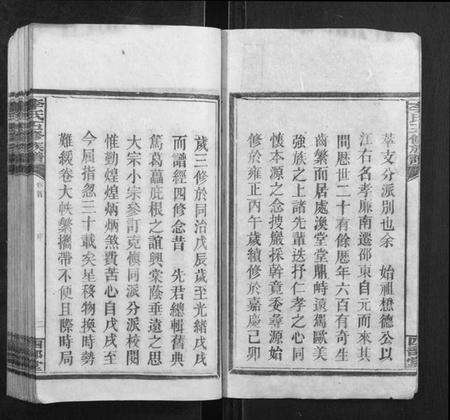 萃支分派別也余　始祖懋德公以
江右名孝廉南遷邵東自元而來其
間歷世二十有餘歷年六百有奇生
齒繁而居處渙堂堂鼎峙遠篤歐美
強族之上諸先輩迭抒仁孝之心同
懷本源之念搜巖採幹竟委尋源始
修於雍正丙午歲續修於嘉慶己卯
歲三修於同治戊辰歲至光緒戊戌
而譜經四修念昔　先君總輯舊典
篤葛藟庇根之誼興棠蔭垂遠之思
大宗小宗參訂克慎同派分派校閱
惟勤煌煌炳炳煞費苦心自戊戌至
今屈指忽三十載矣星移物換時勢
難緩卷大帙繁攜帶不便且際時局
李氏五修族譜
卷首
西郎堂